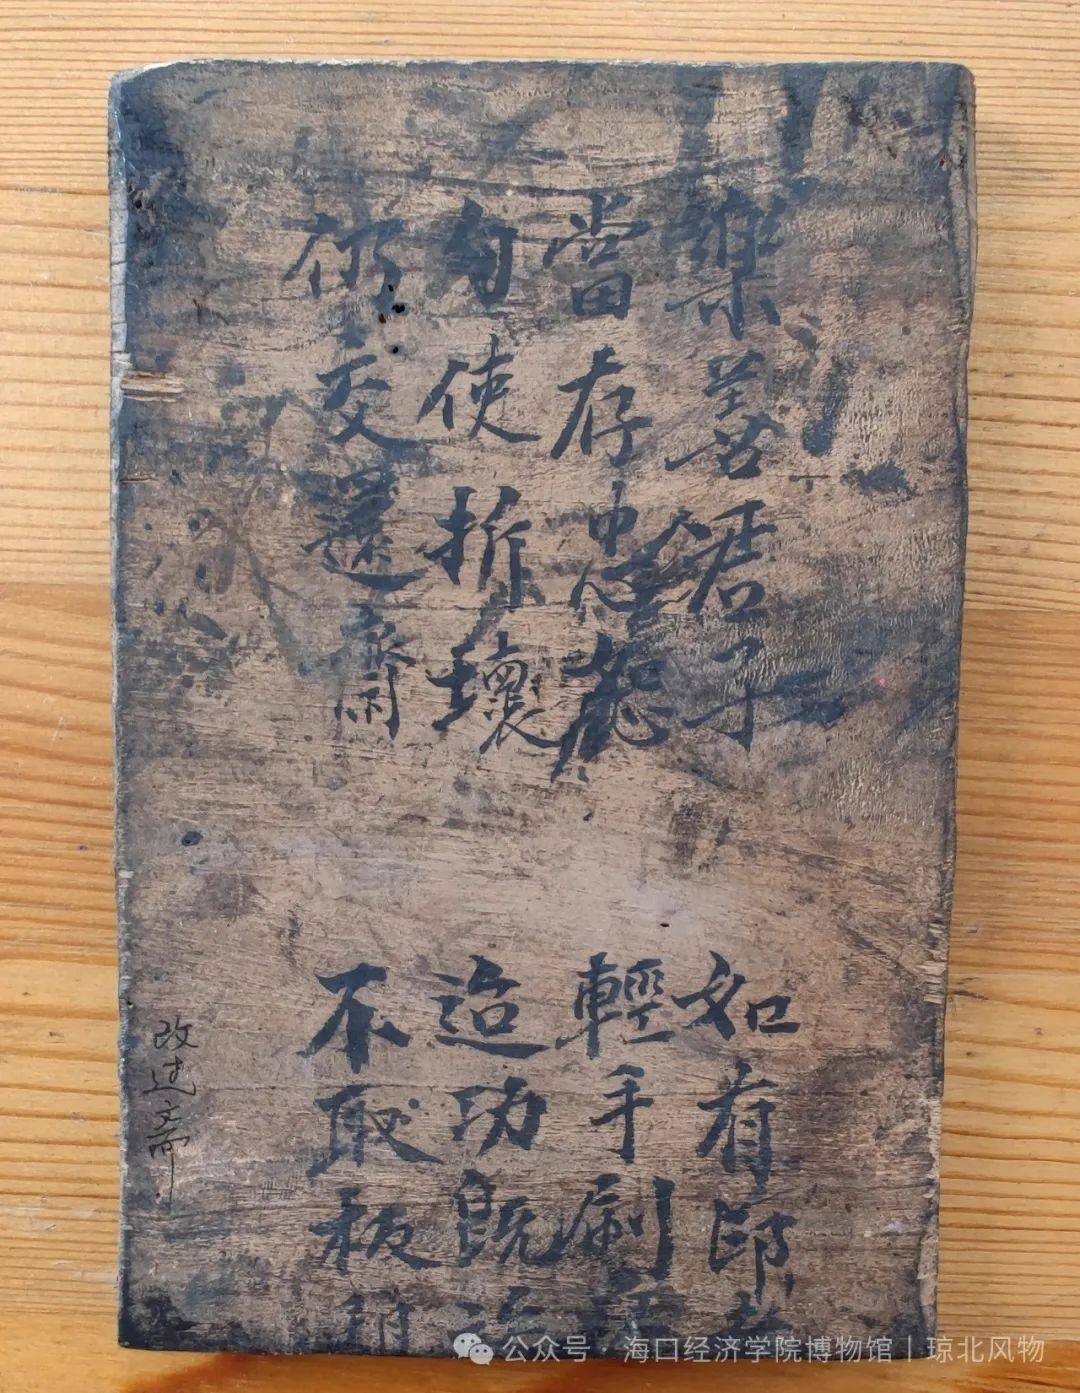 樂善君子
當存忠恕
勿使折壞
仍交還齋
如有印
輕手刷
迨功既
不取板
改过斋
公众号 · 海口经济学院博物馆｜琼北风物